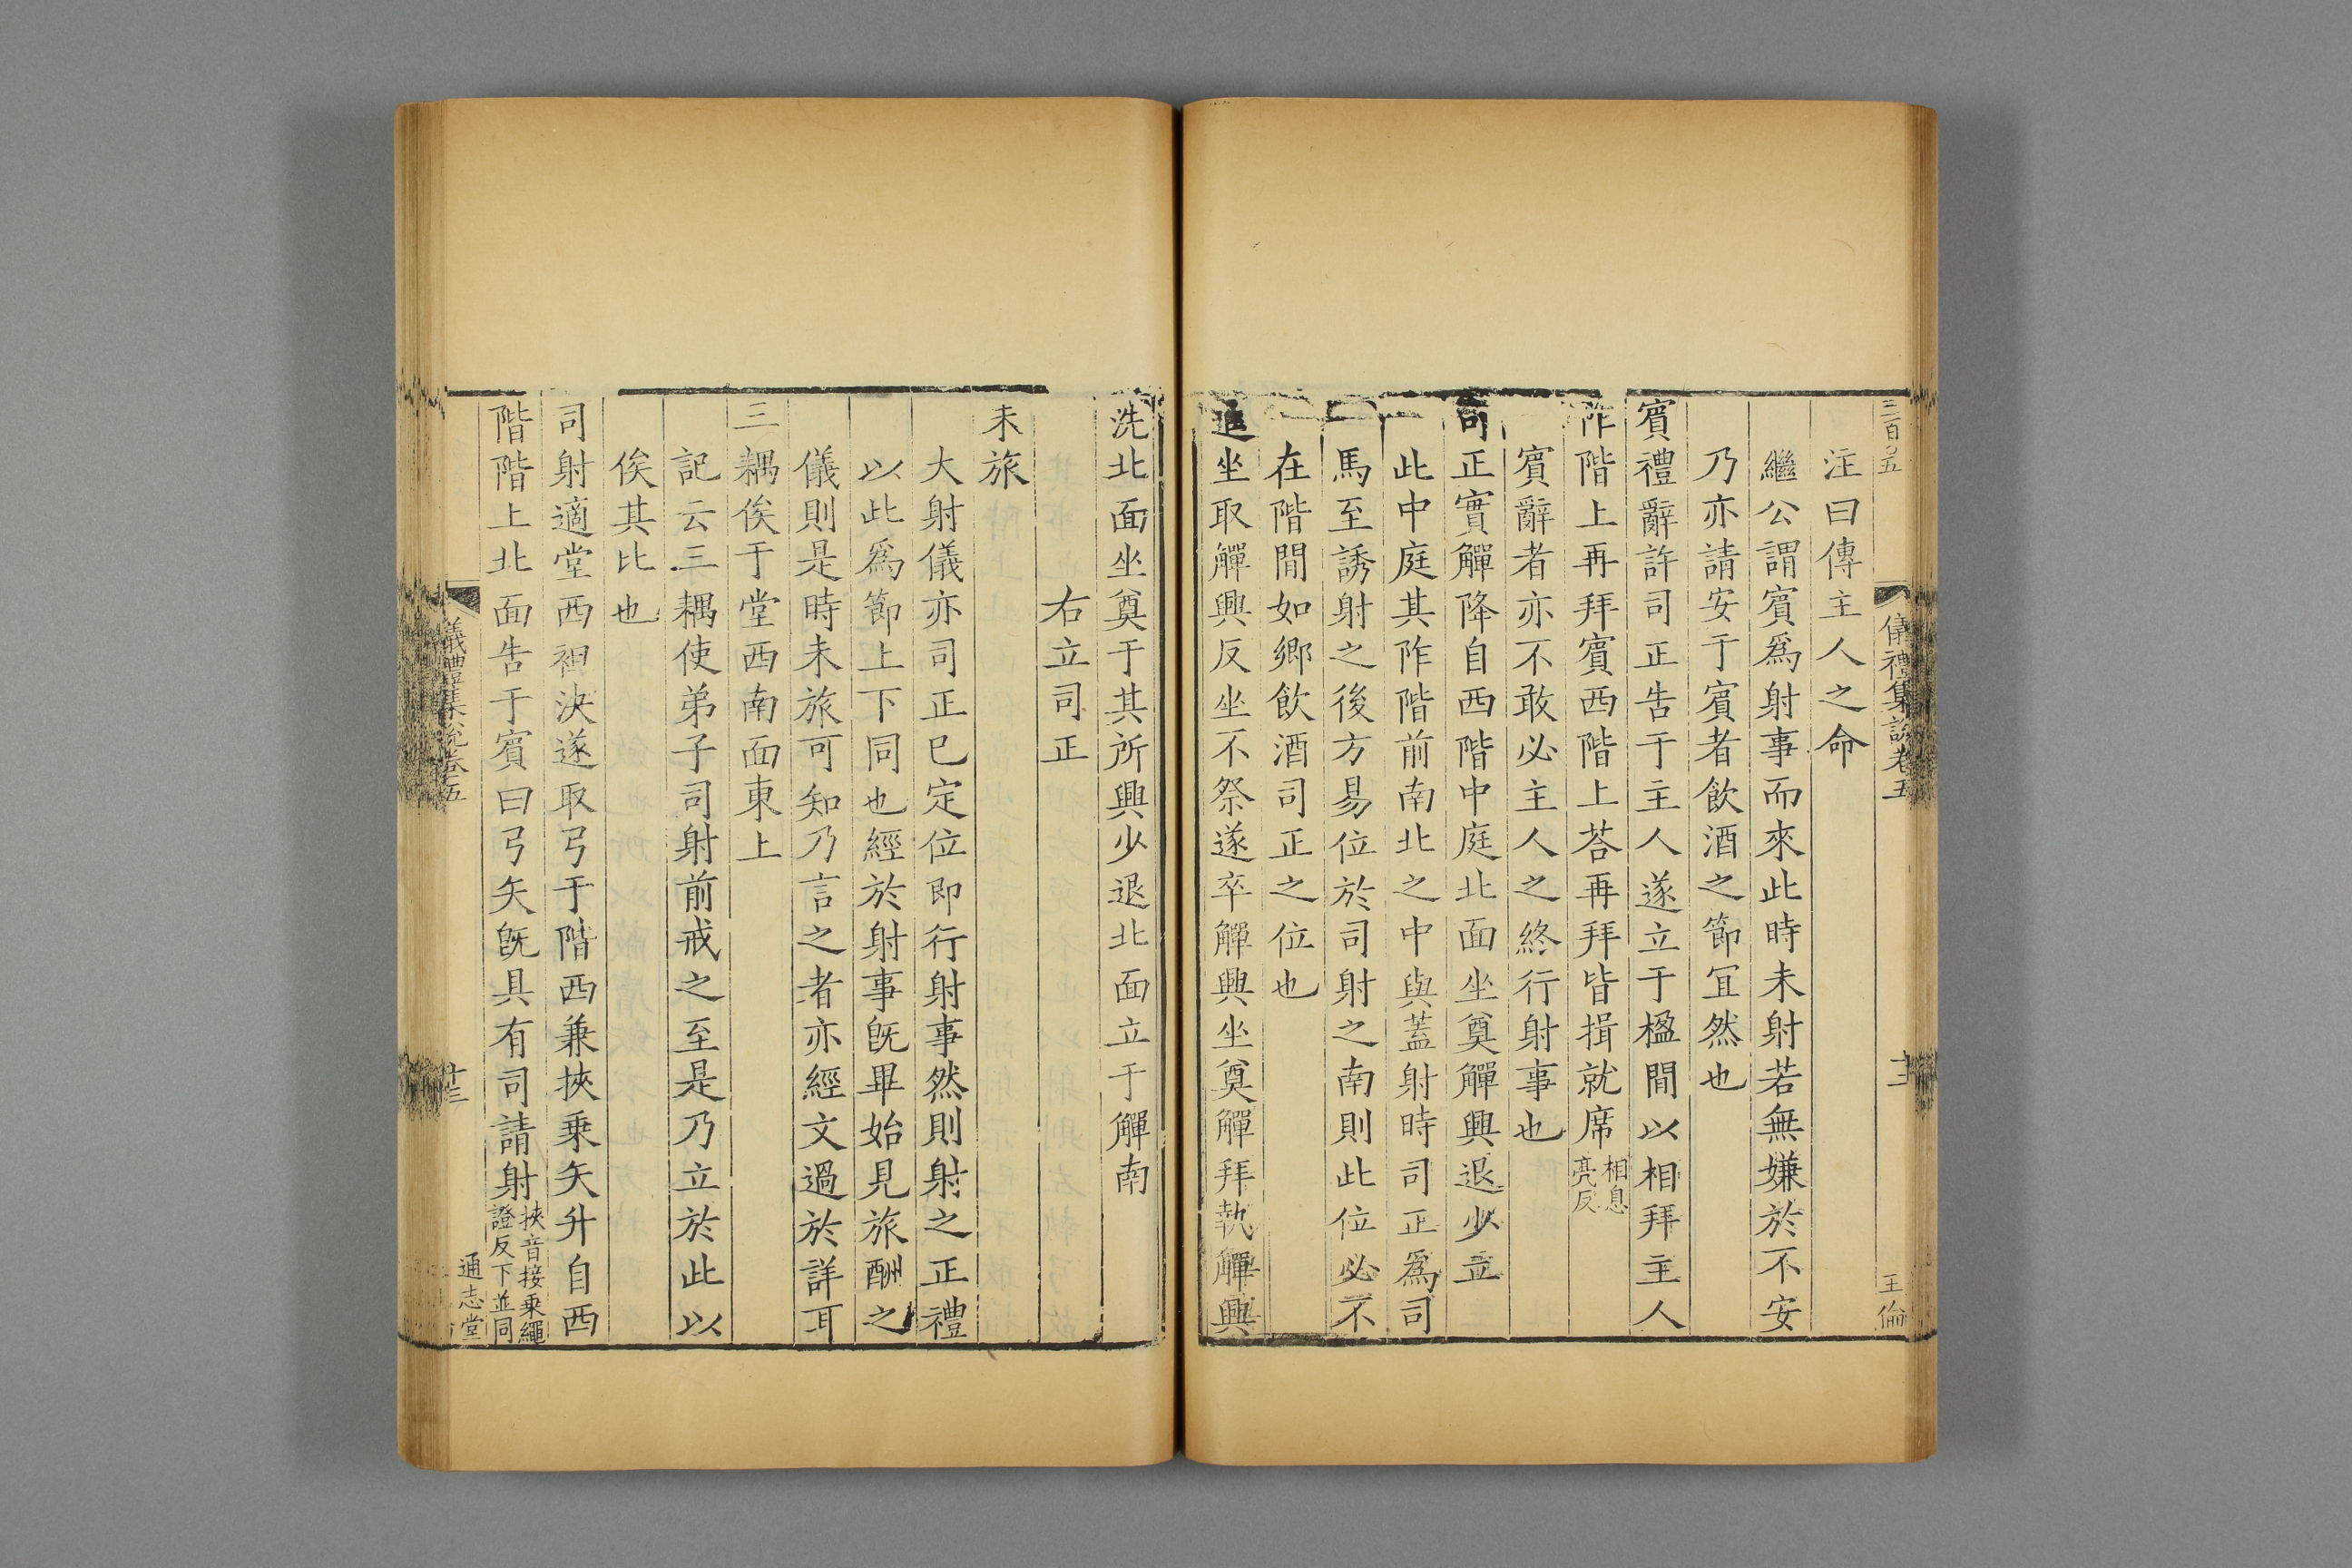 三百〇五
儀禮集說卷五
十二
王倫
注曰傳主人之命
繼公謂賓爲射事而來此時未射若無嫌於不安
乃亦請安于賓者飲酒之節冝然也
賓禮辭許司正告于主人遂立于楹間以相拜主人
阼階上再拜賓西階上荅再拜皆揖就席相息亮反
賓辭者亦不敢必主人之終行射事也
司正實觶降自西階中庭北面坐奠觶興退少立
此中庭其阼階前南北之中與蓋射時司正爲司
馬至誘射之後方易位於司射之南則此位必不
在階間如鄉飲酒司正之位也
進坐取觶興反坐不祭遂卒觶興坐奠觶拜執觶興
洗北面坐奠于其所興少退北面立于觶南
右立司正
未旅
大射儀亦司正已定位即行射事然則射之正禮
以此爲節上下同也經於射事旣畢始見旅酬之
儀則是時未旅可知乃言之者亦經文過於詳耳
三耦俟于堂西南面東上
記云三耦使弟子司射前戒之至是乃立於此以
俟其比也
司射適堂西袒決遂取弓于階西兼挾乗矢升自西
階階上北面告于賓曰弓矢旣具有司請射挾音接乗繩證反下並同
儀禮集說卷五
十三
通志堂